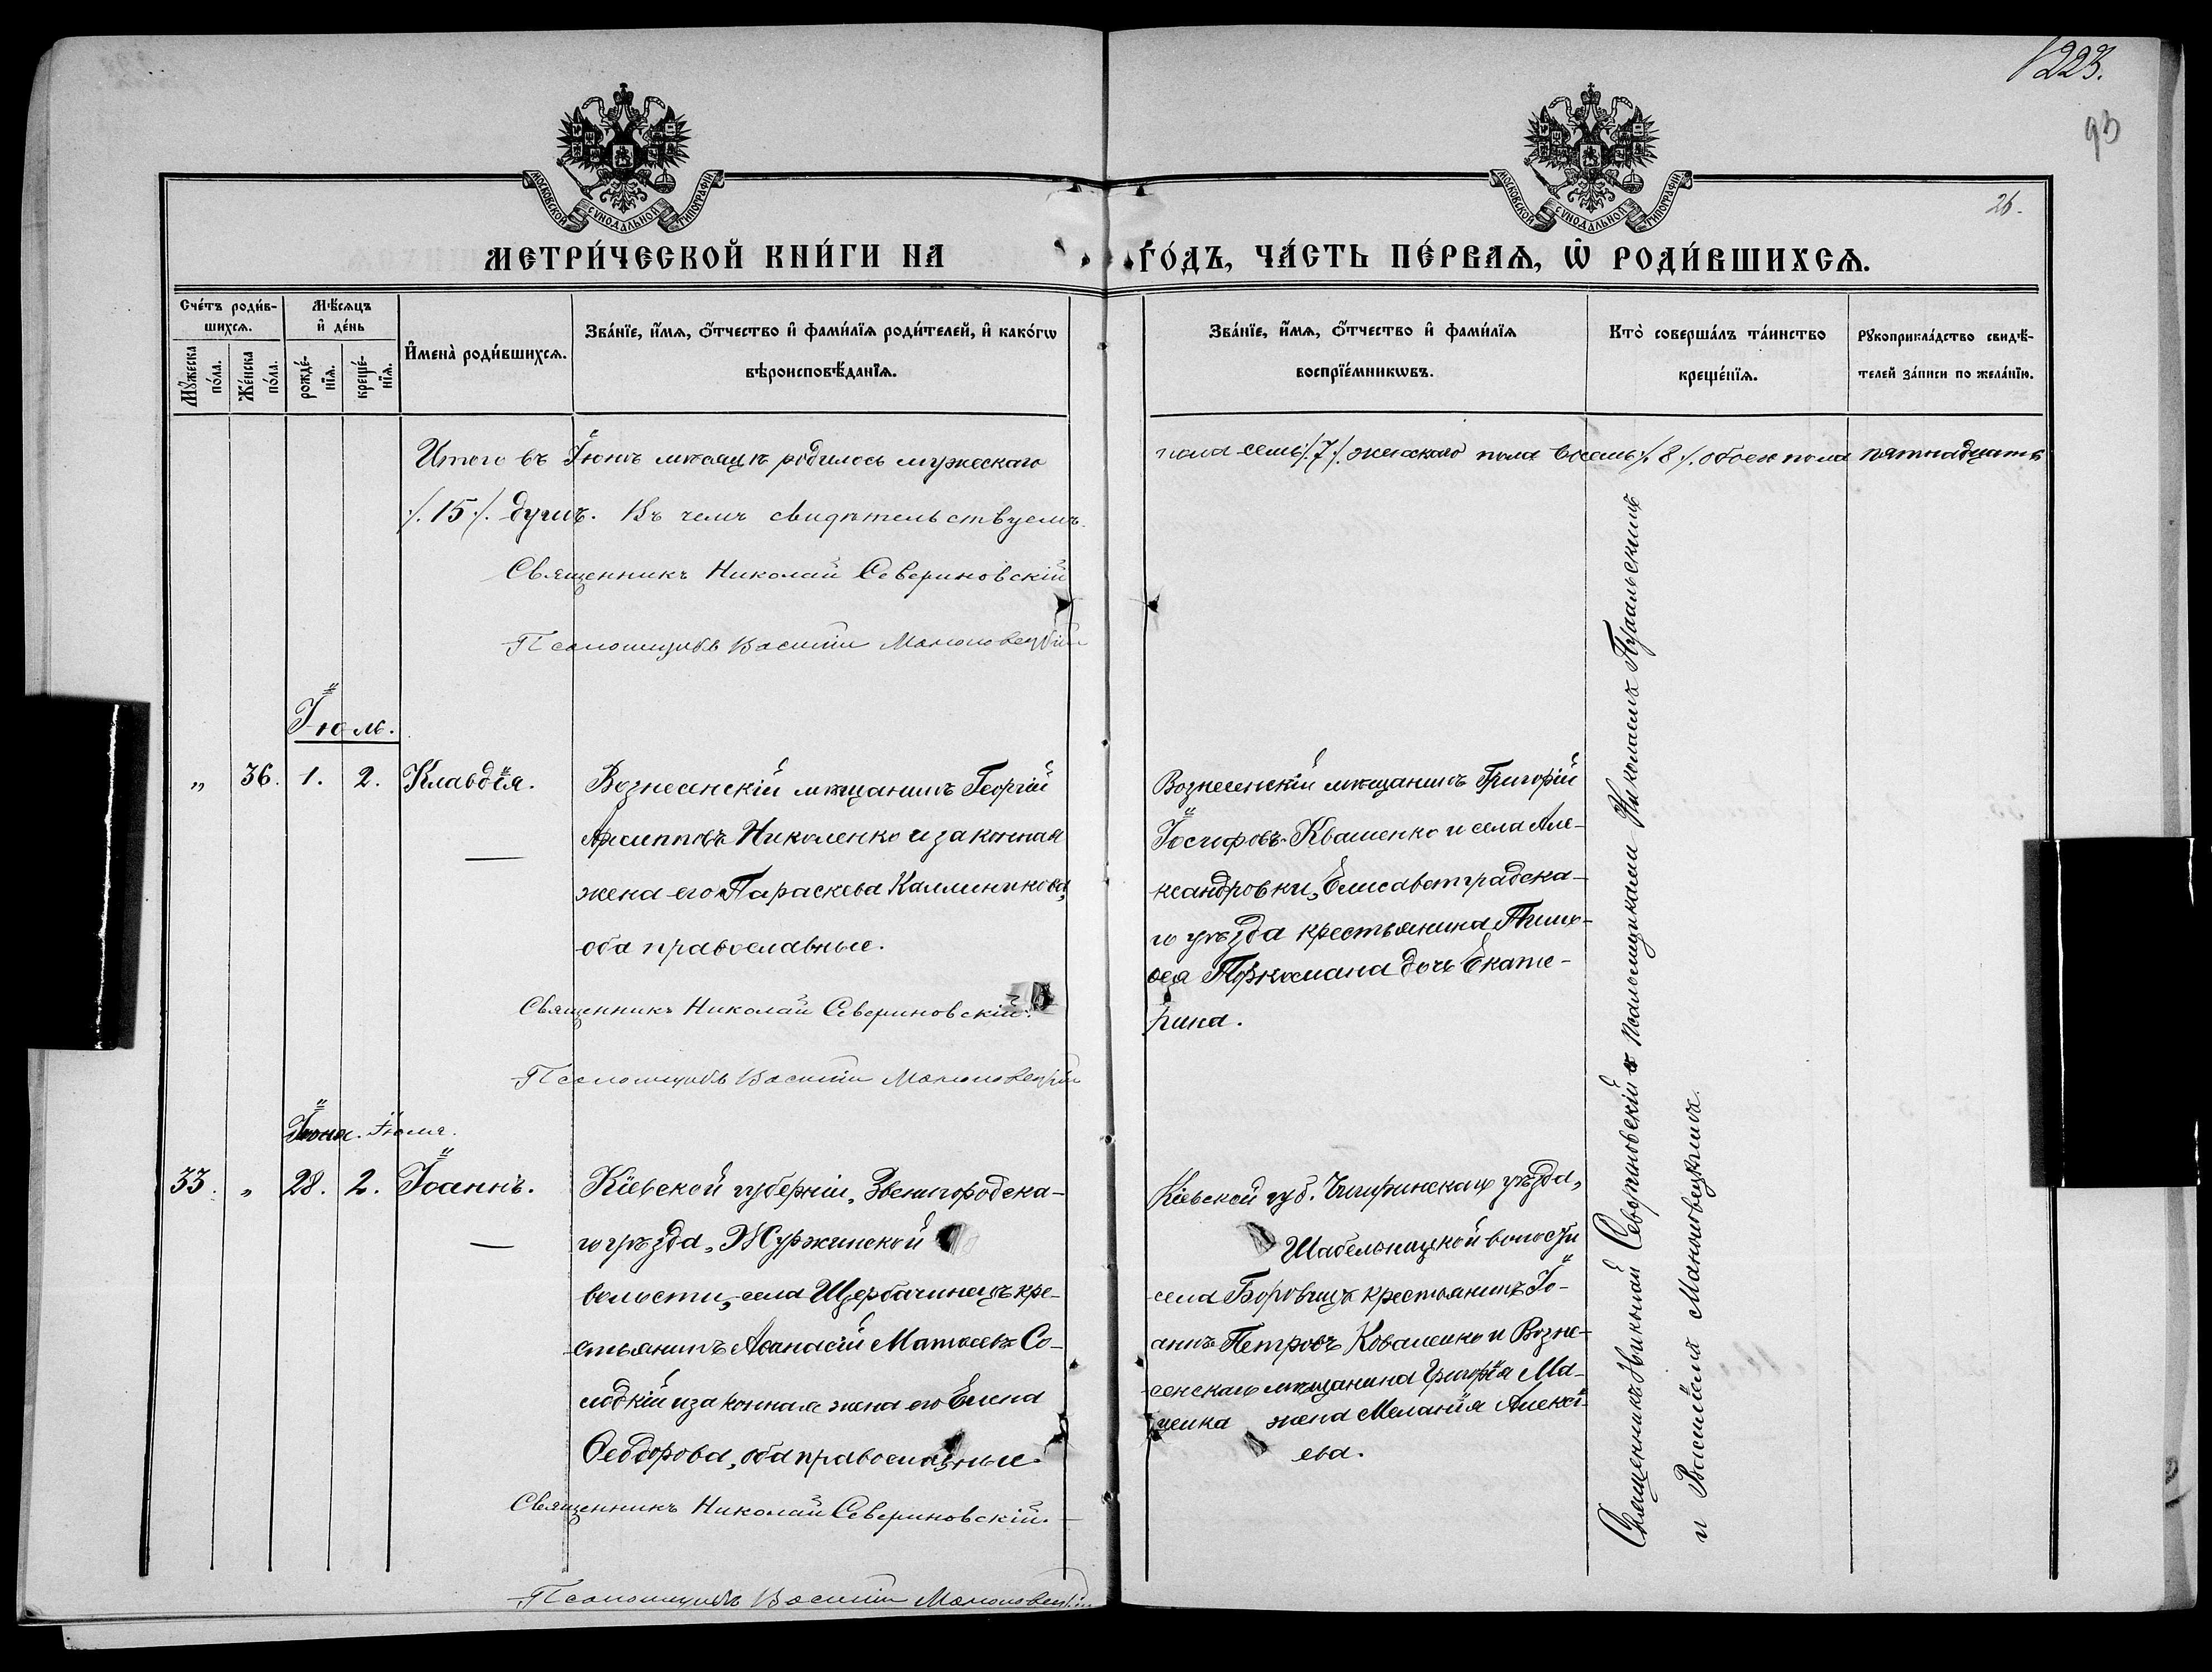 1223.
93
26.
МОСКОВСКОЙ СѴНОДАЛЬНОЙ ТИПОГРАФІИ
МОСКОВСКОЙ СѴНОДАЛЬНОЙ ТИПОГРАФІИ
МЕТРИ́ЧЕСКОЙ КНИ́ГИ НА
ГО́ДЪ, ЧА́СТЬ ПЕ́РВАѦ, Ѽ РОДИ́ВШИХСѦ.
Сче́тъ роди́в-
шихсѧ.
Мꙋ́жеска по́ла.
Же́нска по́ла.
Мѣ́сѧцъ
и҆ де́нь
рожде́-нїѧ.
креще́-нїѧ.
И҆мена̀ роди́вшихсѧ.
Зва́нїе, и҆́мѧ, ѻ҆́тчество и҆ фами́лїѧ роди́телей, и҆ како́гѡ
вѣроисповѣ́данїѧ.
Зва́нїе, и҆́мѧ, ѻ҆́тчество и҆ фами́лїѧ
воспрїе́мникѡвъ.
Кто̀ соверша́лъ та́инство
креще́нїѧ.
Рꙋкоприкла́дство свидѣ́-
телей за́писи по жела́нїю.
Итого въ Іюнѣ мѣсяцѣ родилось мужескаго
пола семь /.7./. женскаго пола восемь /. 8 /. обоего пола пятнадцать
/.15./. душъ. Въ чемъ свидѣтельствуемъ.
Священникъ Николай Севериновскій
Псаломщикъ Василій Маньковецкій
Іюль.
" 36. 1. 2. Клавдія.
Вознесенскій мѣщанинъ Георгій
Филипповъ Николенко и законная
жена его Параскева Каллиникова,
оба православные.
Священникъ Николай Севериновскій.
Псаломщикъ Василій Маньковецкій
Вознесенскій мѣщанинъ Григорій
Іосифовъ Квашенко и села Але-
ксандровки, Елисаветградска-
го уѣзда крестьянина
дочь Екате-
рина.
Іюня. Іюля.
33. " 28. 2. Іоаннъ.
Кіевской губерніи, Звенигородска-
го уѣзда, Журжинской
волости, села Щербачинецъ кре-
стьянинъ Аѳанасій Матѳеевъ Со-
лодкій и законная жена его Елена
Ѳеодорова, оба православные.
Священникъ Николай Севериновскій.
Псаломщикъ Василій Маньковецкій
Кіевской губ. Чигиринскаго уѣзда,
Шабельницкой волости
села Боровицъ крестьянинъ Іо-
аннъ Петровъ Коваленко и Возне-
сенскаго мѣщанина Григорія Ма-
ценка жена Меланія Алексі-
ева.
Священникъ Николай Севериновскій съ псаломщиками Николаемъ
и Василіемъ Маньковецкимъ.